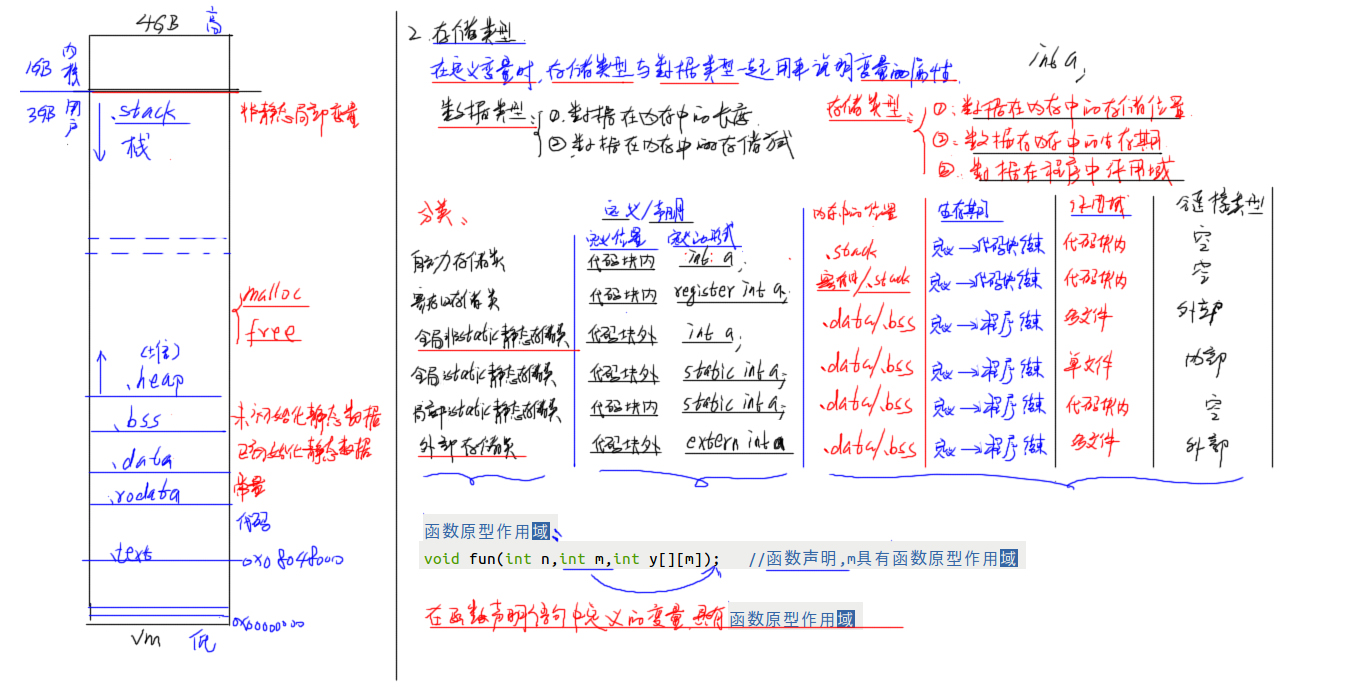 4GB 高
1GB 内核
3GB 用户
.stack 非静态局部变量
栈
malloc
free
(土倍)
.heap
.bss 未初始化静态数据
.data 已初始化静态数据
.rodata 常量
代码
.text 0x08048000
0x00000000
vm 低
2. 存储类型
int a;
在定义变量时,存储类型与数据类型一起用来说明变量的属性.
数据类型: ①.数据在内存中的长度
②.数据在内存中的存储方式
存储类型: ①.数据在内存中的存储位置
②.数据在内存中的生存期
③.数据在程序中作用域
分类: 定义/声明 内存中的位置 生存期 作用域 链接类型
定义位置 定义形式
自动存储类 代码块内 int a; .stack 定义→代码块结束 代码块内 空
寄存器存储类 代码块内 register int a; 寄存器/.stack 定义→代码块结束 代码块内 空
全局非static静态存储类 代码块外 int a; .data/.bss 定义→程序结束 多文件 外部
全局static静态存储类 代码块外 static int a; .data/.bss 定义→程序结束 单文件 内部
局部static静态存储类 代码块内 static int a; .data/.bss 定义→程序结束 代码块内 空
外部存储类 代码块外 extern int a .data/.bss 定义→程序结束 多文件 外部
函数原型作用域:
void fun(int n,int m,int y[][m]); //函数声明,m具有函数原型作用域
在函数声明语句中定义的变量,具有函数原型作用域